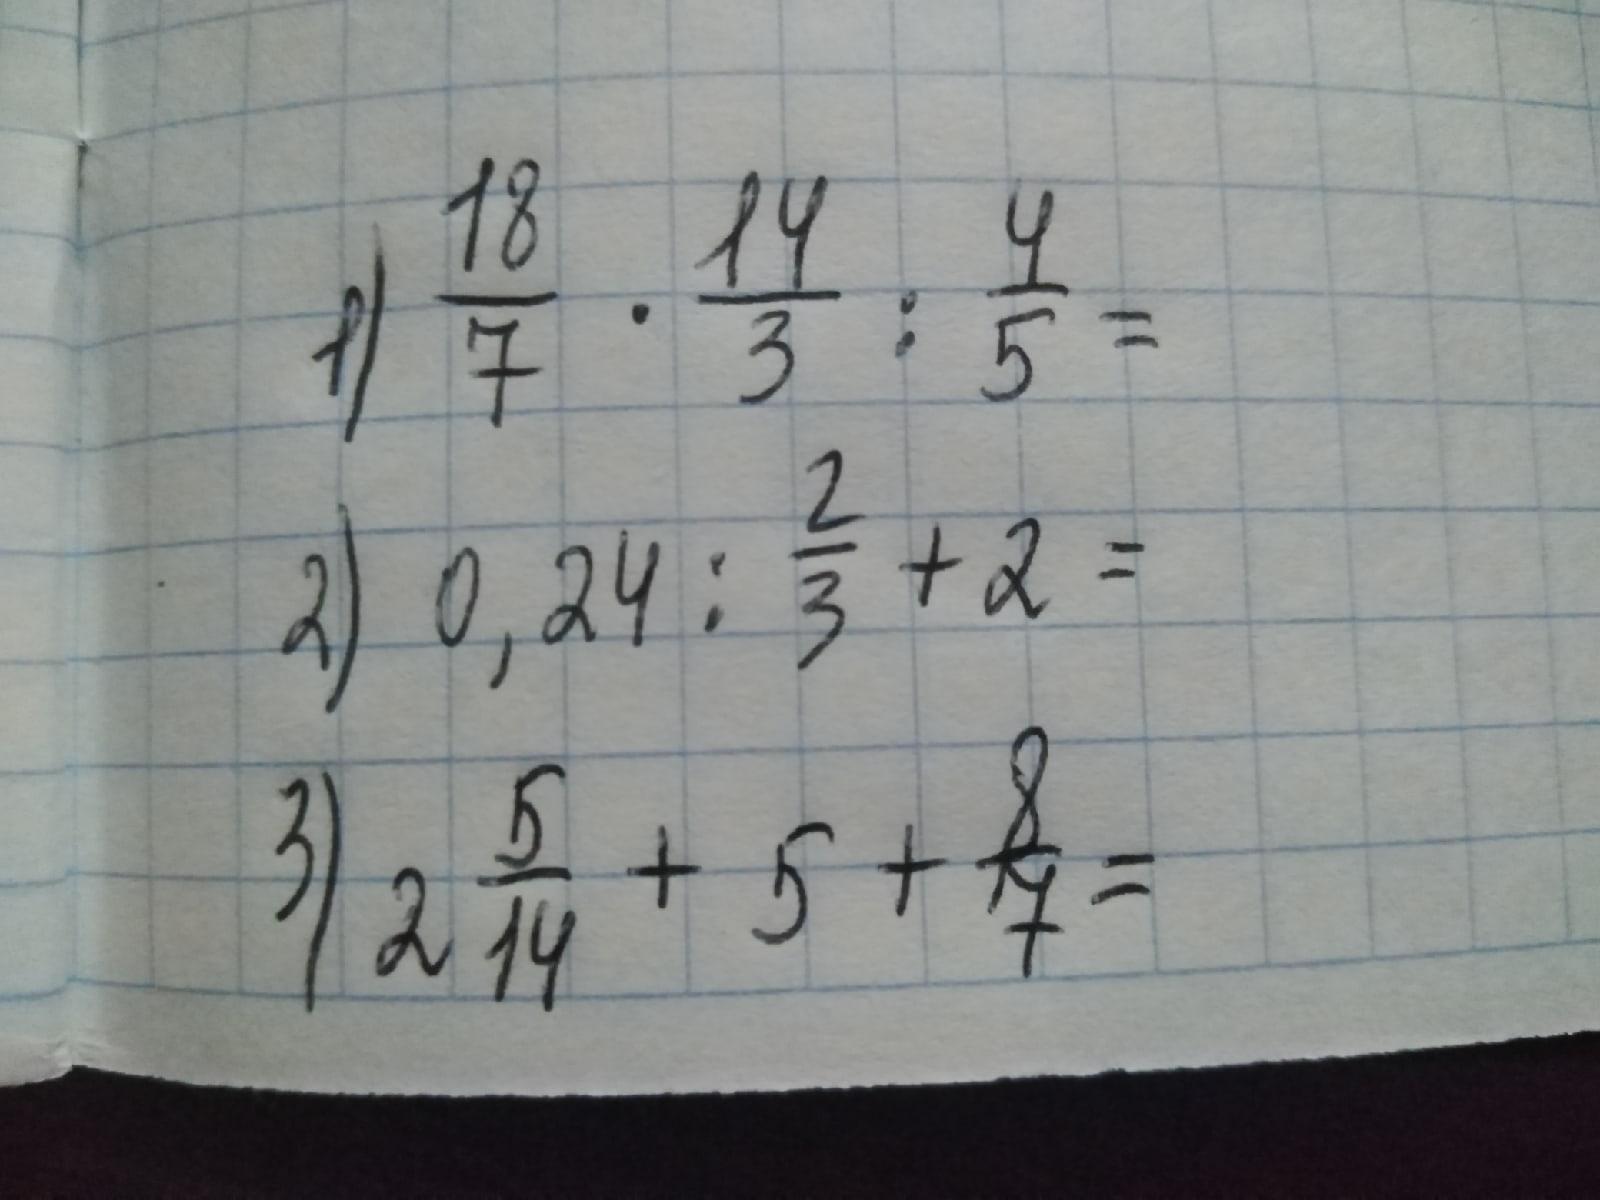 1) 18/7 · 14/3 : 4/5 =
2) 0,24 : 2/3 + 2 =
3) 2 5/14 + 5 + 8/7 =